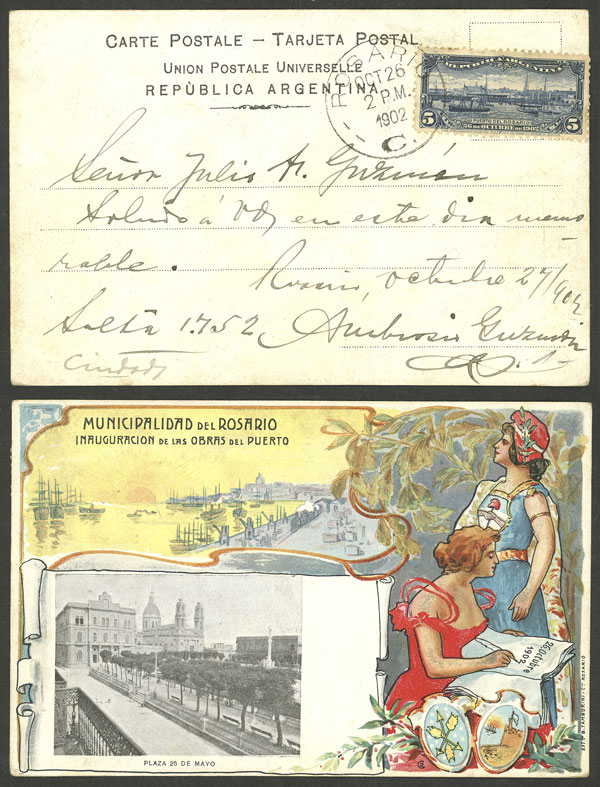 CARTE POSTALE – TARJETA POSTAL
UNION POSTALE UNIVERSELLE
REPÙBLICA ARGENTINA
ROSARIO
OCT 26
2 P.M.
1902
C.
REPUBLICA ARGENTINA
5 PUERTO DEL ROSARIO 5
26 DE OCTUBRE DE 1902
Señor Julio A. Guzmán
Saludo á Vd, en este dia memo
rable.
Rosario, octubre 27/902
Salta 1.752 Ambrosio Guzmán
Ciudad
MUNICIPALIDAD DEL ROSARIO
INAUGURACION DE LAS OBRAS DEL PUERTO
26 Octubre
1902
PLAZA 25 DE MAYO
EST. B. TAMBURINI & Cº. ROSARIO